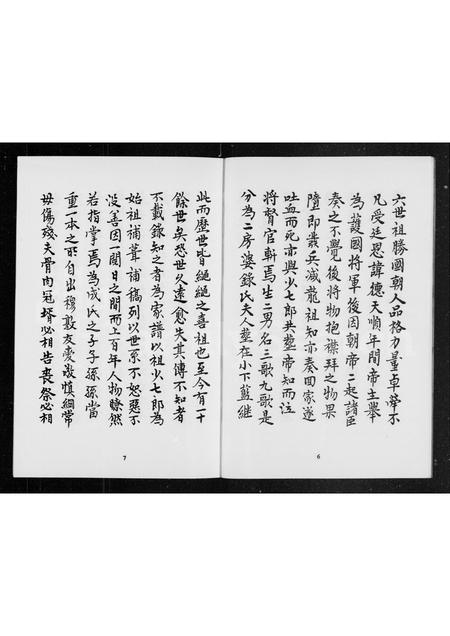 六世祖勝國朝人品格力量卓犖不
凡受廷恩諱德天順年間帝主舉
為護國將軍後因朝帝二起諸臣
奏之不覺後將物抱襟拜之物果
墮即叢兵滅龍祖知亦奏回家遂
吐血而死亦與少七郎共塟帝知而泣
將督官斬焉生二男名三歌九歌是
分為二房婆錄氏夫人塟在小下藍継
6
此而歷世皆繩繩之喜祖也至今有一十
餘世矣恐世久遠愈失其傳不知者
不載錄知之者為家譜以祖少七郎為
始祖補葺補稿列以世系不恕惡不
沒善因一閱日之間而上百年人物瞭然
若指掌焉為成氏之子子孫孫當
重一本之所自出穆敦友愛敬慎綱常
毋傷殘夫骨肉冠婚必相告喪祭必相
7